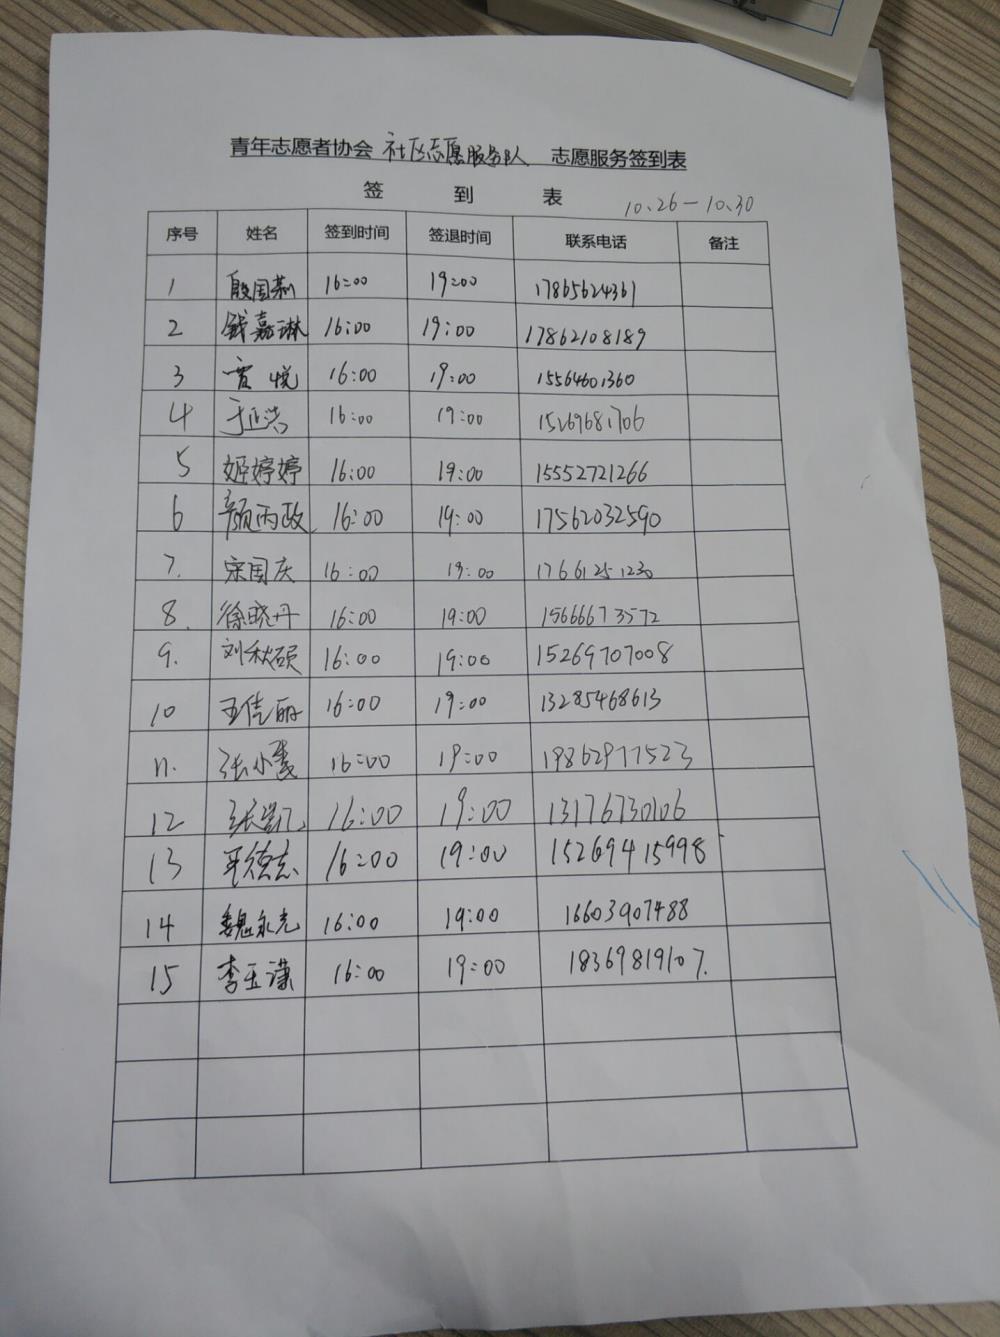 青年志愿者协会 社区志愿服务队 志愿服务签到表
签 到 表 10.26-10.30
序号 姓名 签到时间 签退时间 联系电话 备注
1 殷国荣 16:00 19:00 17865624361
2 钱嘉琳 16:00 19:00 17862108189
3 贾悦 16:00 19:00 15564601360
4 于正浩 16:00 19:00 15269681706
5 姬婷婷 16:00 19:00 15552721266
6 颜丙政 16:00 19:00 17562032590
7. 宋国庆 16:00 19:00 17661251230
8. 徐晓丹 16:00 19:00 15666673572
9. 刘秋硕 16:00 19:00 15269707008
10 王佳丽 16:00 19:00 13285468613
11. 张小 16:00 19:00 19862977523
12 张凯 16:00 19:00 13176730106
13 王德志 16:00 19:00 15269415998
14 魏永光 16:00 19:00 16603907488
15 李玉潇 16:00 19:00 18369819107.